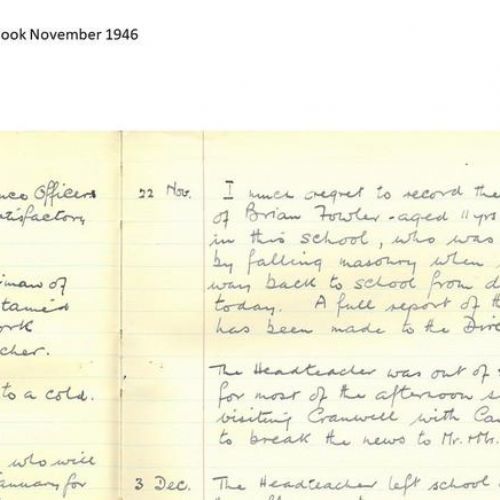 ook November 1946
nce Officers
atisfactory
iman of
tained
ork
cher.
to a cold.
who will
anuary for
22 Nov. I much regret to record the
of Brian Fowler - aged 11 yrs
in this school, who was
by falling masonry when
way back to school from d
today. A full report of th
has been made to the Dire
The Headteacher was out of s
for most of the afternoon s
visiting Cranwell with Ca
to break the news to Mr. Mrs.
3 Dec. The Headteacher left school